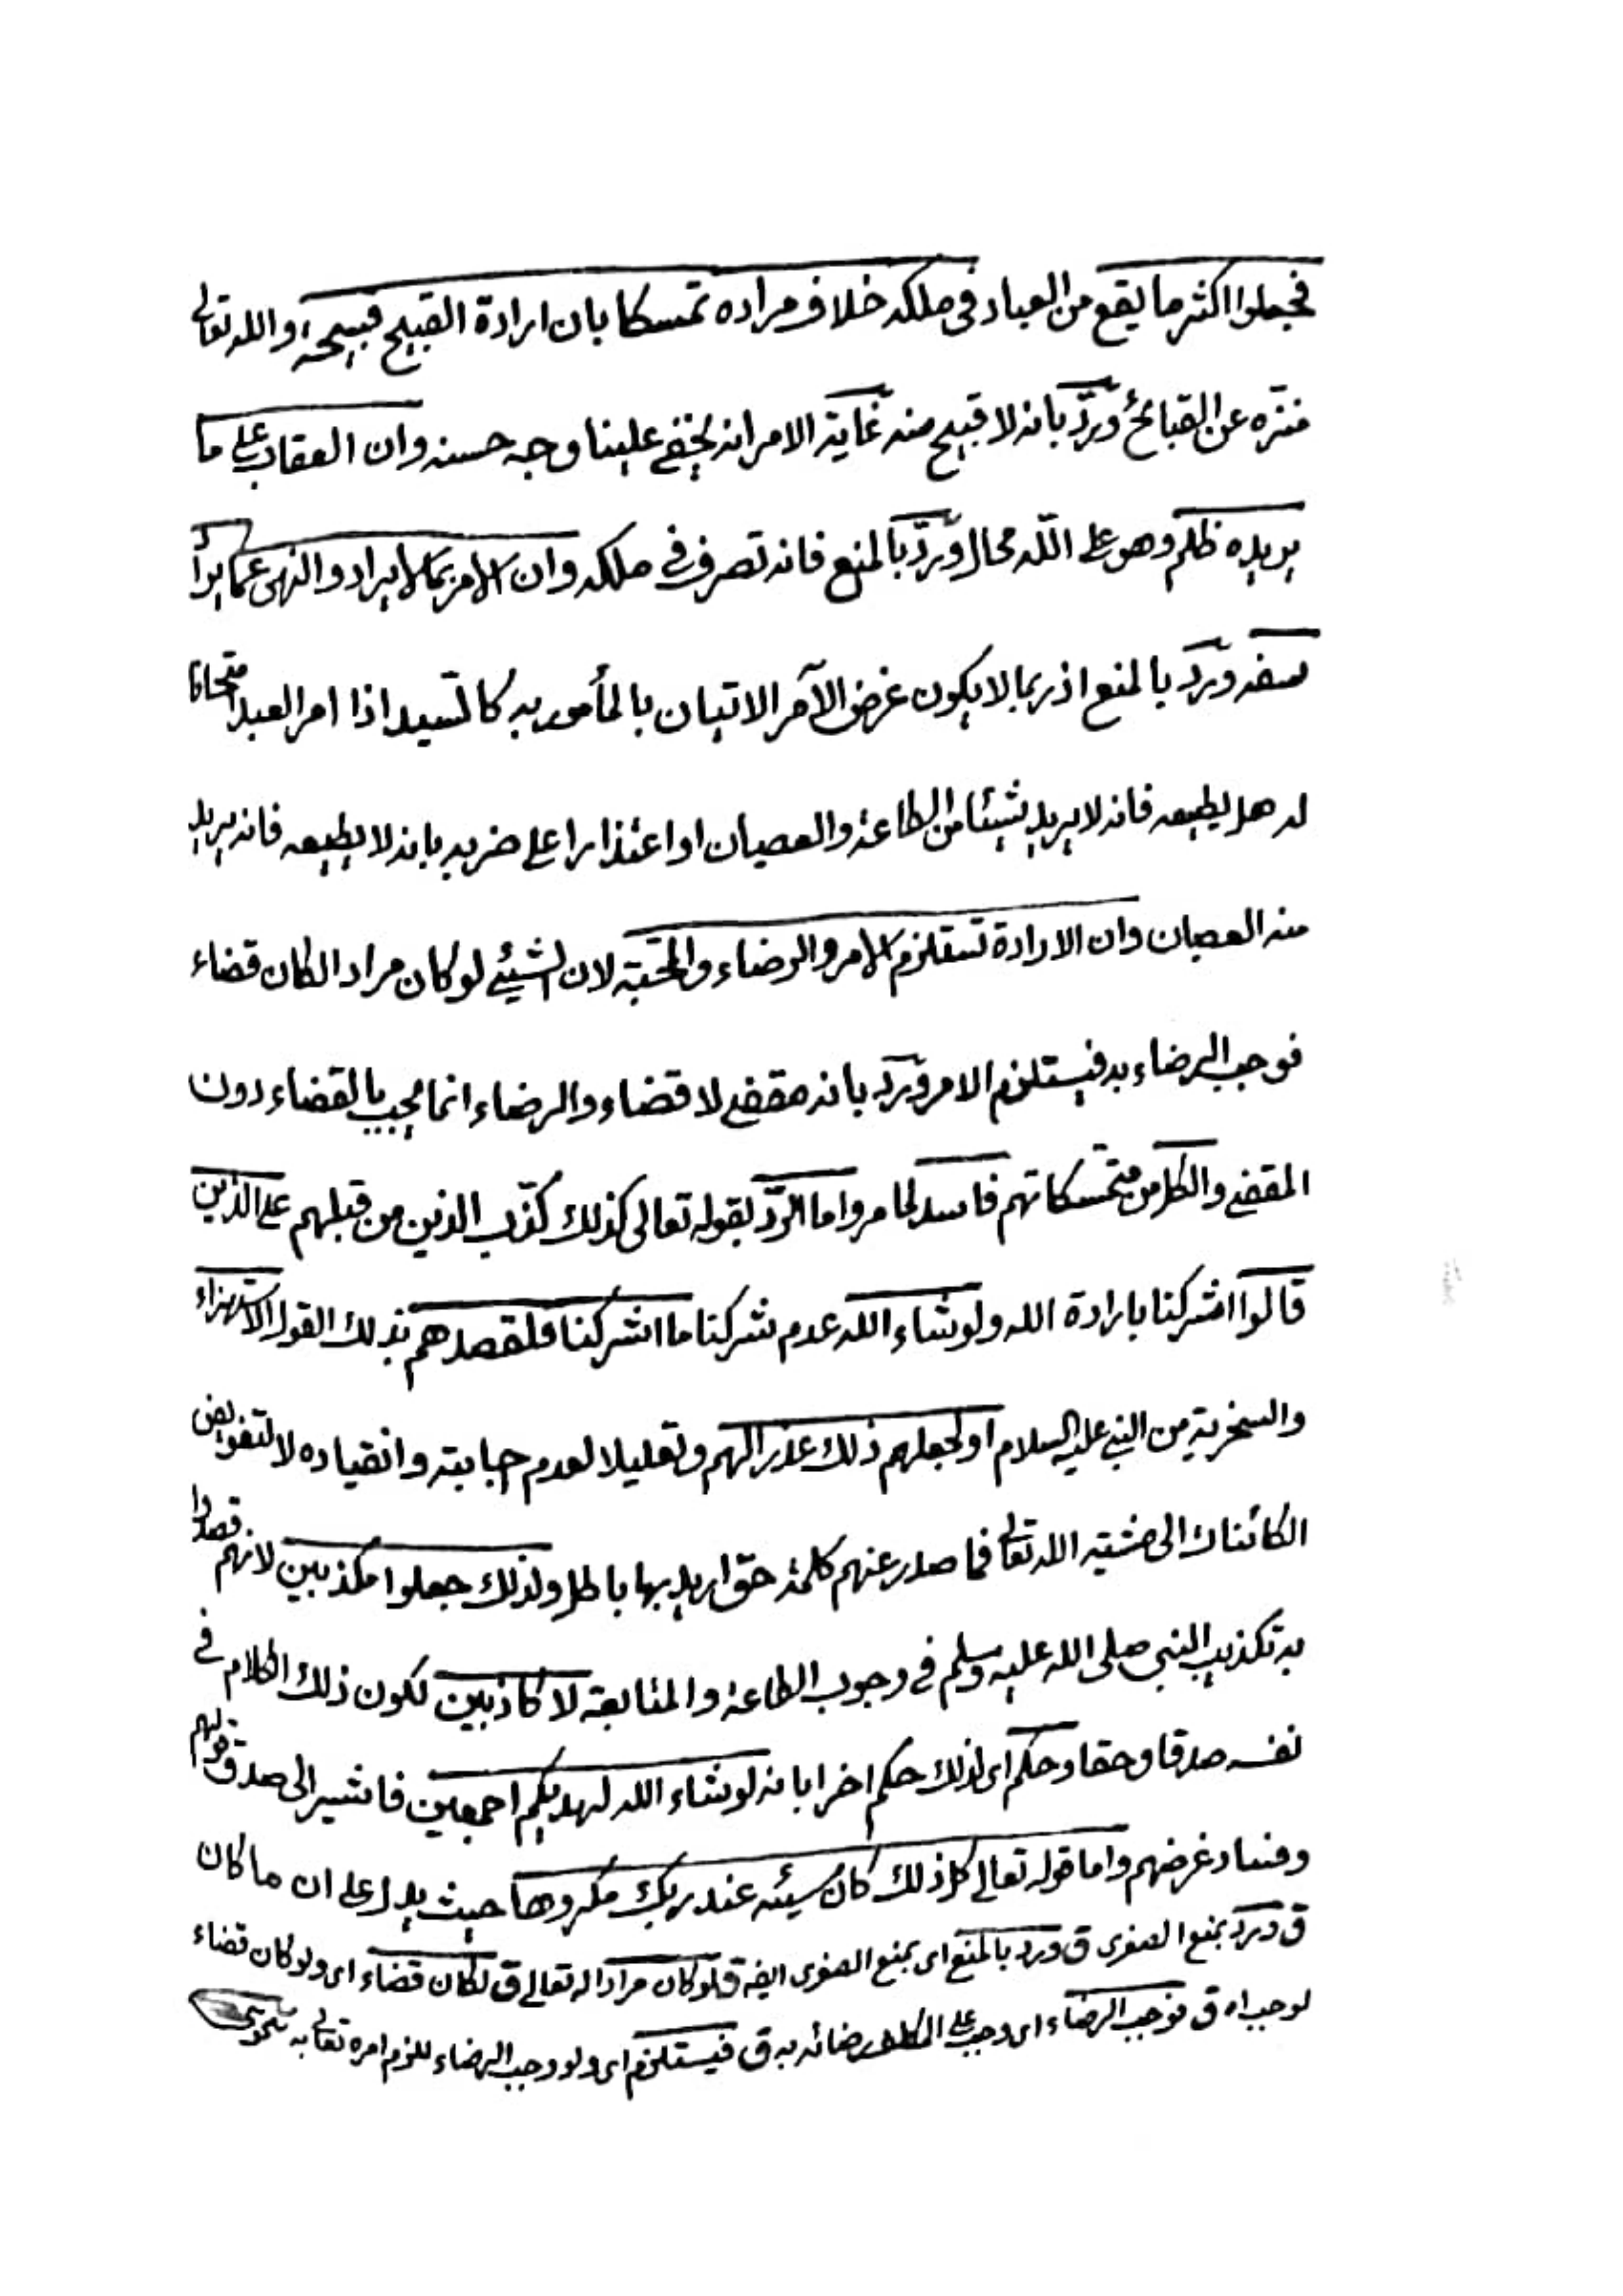 فجعلوا اكثر ما يقع من العباد فى ملكه خلاف مراده تمسكا بان ارادة القبيح قبيحة والله تعالى
منزه عن القبائح وردّ بانه لا قبيح منه غاية الامر انه يخفى علينا وجه حسنه وان العقاب على ما
يريده ظلم وهو على الله محال وردّ بالمنع فانه تصرف فى ملكه وان الامر بما لا يراد والنهى عما يراد
سفه وردّ بالمنع اذ ربما لا يكون غرض الآمر الاتيان بالمأمور به كالسّيد اذا امر العبد امتحانا
له هل يطيعه فانه لا يريد شيئا من الطاعة والعصيان او اعتذارا على ضربه بانه لا يطيعه فانه يريد
منه العصيان وان الارادة تستلزم الامر والرضاء والمحبّة لان الشيئ لو كان مرادا لكان قضاء
فوجب الرضاء به فيستلزم الامر وردّ بانه مقضى لا قضاء والرضاء انما يجب بالقضاء دون
المقضى والكل من متمسكاتهم فاسد لما مر واما الردّ بقوله تعالى كذلك كذّب الذين من قبلهم على الذين
قالوا اشركنا بارادة الله ولو شاء الله عدم شركنا ما اشركنا فلقصدهم بذلك القول الاستهزاء
والسخرية من النبى عليه السلام او لجعلهم ذلك عذرا لهم وتعليلا لعدم اجابته وانقياده لا لتفويض
الكائنات الى مشيّة الله تعالى فما صدر عنهم كلمة حقّ اريد بها باطل ولذلك جعلوا مكذبين لانهم قصدوا
به تكذيب النبى صلى الله عليه وسلم فى وجوب الطاعة والمتابعة لا كاذبين لكون ذلك الكلام فى
نفسه صدقا وحقا وحكم اى لذلك حكم اخرا بانه لو شاء الله لهديكم اجمعين فاشير الى صدق قولهم
وفساد غرضهم واما قوله تعالى كل ذلك كان سيئه عند ربك مكروها حيث يدل على ان ما كان
ق وردّ بمنع الصغرى ق ورد بالمنع اى بمنع الصغرى ايضه ق لو كان مرادا له تعالى ق لكان قضاء اى ولو كان قضاء
لوجب اه ق فوجب الرضاء اى وجب على المكلف رضائه به ق فيستلزم اى ولو وجب الرضاء للزم امره تعالى به